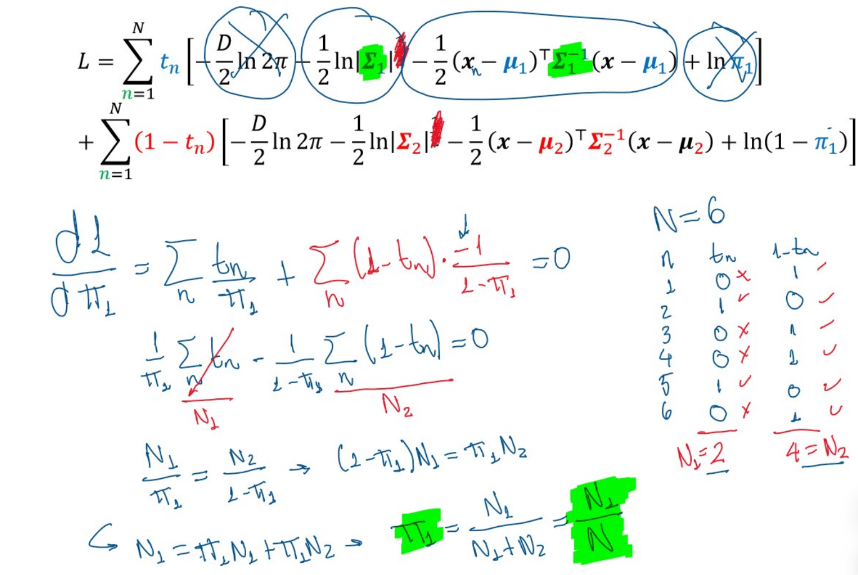 L = \sum_{n=1}^{N} t_n [ -\frac{D}{2} \ln 2π - \frac{1}{2} \ln|Σ_1| - \frac{1}{2} (x_n - μ_1)^⊤ Σ_1^{-1} (x - μ_1) + \ln π_1 ]
+ \sum_{n=1}^{N} (1 - t_n) [ -\frac{D}{2} \ln 2π - \frac{1}{2} \ln|Σ_2| - \frac{1}{2} (x - μ_2)^⊤ Σ_2^{-1} (x - μ_2) + \ln(1 - π_1) ]
\frac{dL}{dπ_1} = \sum_n \frac{t_n}{π_1} + \sum_n (1 - t_n) · \frac{-1}{1 - π_1} = 0
\frac{1}{π_1} \sum_n t_n - \frac{1}{1 - π_1} \sum_n (1 - t_n) = 0
N_1 N_2
\frac{N_1}{π_1} = \frac{N_2}{1 - π_1} → (1 - π_1) N_1 = π_1 N_2
N_1 = π_1 N_1 + π_1 N_2 → π_1 = \frac{N_1}{N_1 + N_2} = \frac{N_1}{N}
N = 6
n t_n 1 - t_n
1 0 × 1 ✓
2 1 ✓ 0 ✓
3 0 × 1 ✓
4 0 × 1 ✓
5 1 ✓ 0 ✓
6 0 × 1 ✓
N_1 = 2 4 = N_2